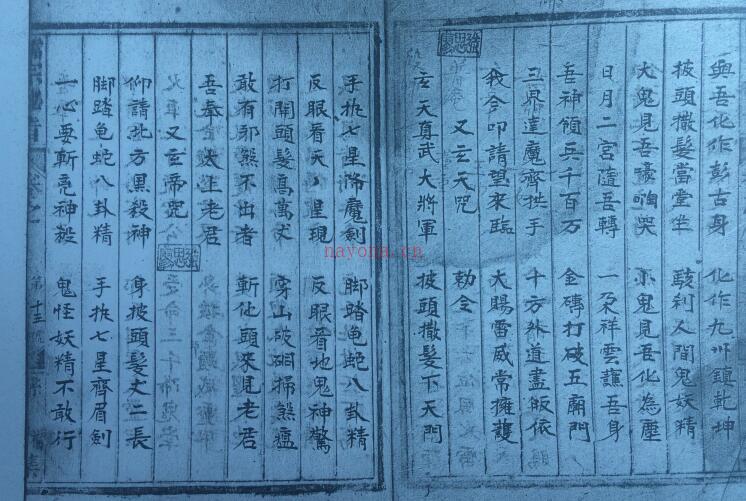 與吾化作彭古身 化作九州鎮乾坤
披頭撒髮當堂坐 駭利人間鬼妖精
大鬼見吾嚎啕哭 小鬼見吾化為塵
日月二宮隨吾轉 一朵祥雲護吾身
吾神領兵千百万 金磚打破五廟門
三界達魔齊拱手 十方外道盡皈依
我今叩請望來臨 大賜雷威常擁護
又玄天咒 勅令
玄天真武大將軍 披頭撒髮下天門
手执七星降魔劍 脚踏龟蛇八卦精
反眼看天天星現 反眼看地鬼神驚
打開頭髮高萬丈 穿山破洞掃煞瘟
敢有邪煞不出者 斬他頭來見老君
吾奉太上老君
又玄帝咒
仰請北方黑殺神 身披頭髮丈二長
脚踏龟蛇八卦精 手执七星齊眉劍
一心要斬惡神煞 鬼怪妖精不敢行
第十五
nayona.cn